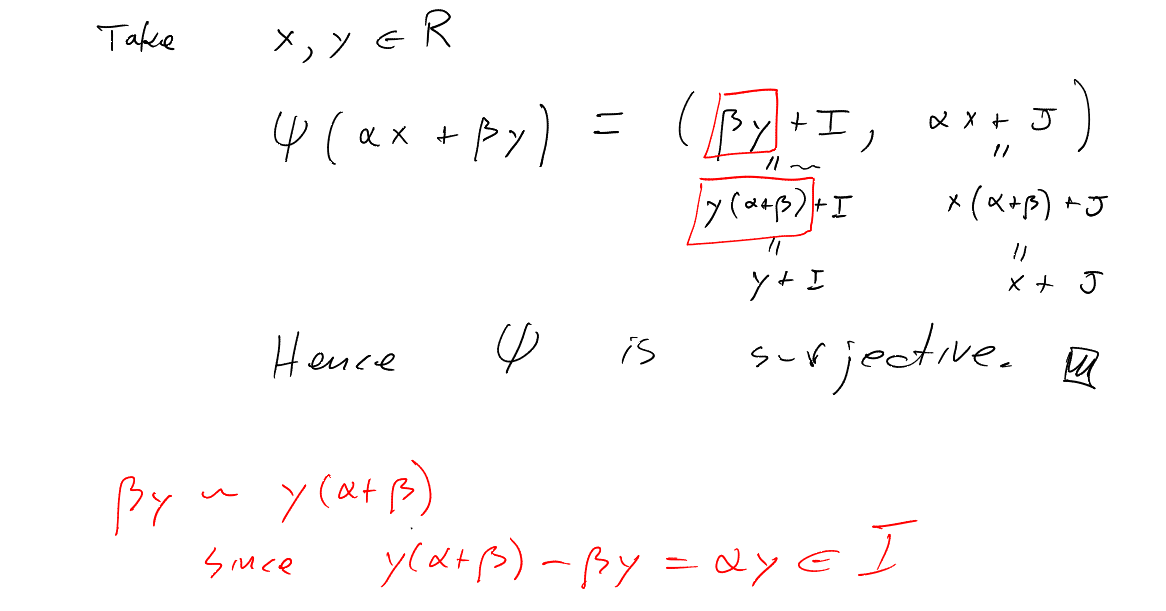 Take x, y ∈ R
ψ(αx + βy) = (βy + I, αx + J)
" ~ "
y(α+β) + I x(α+β) + J
" "
y + I x + J
Hence ψ is surjective.
βy ~ y(α+β)
since y(α+β) - βy = αy ∈ I